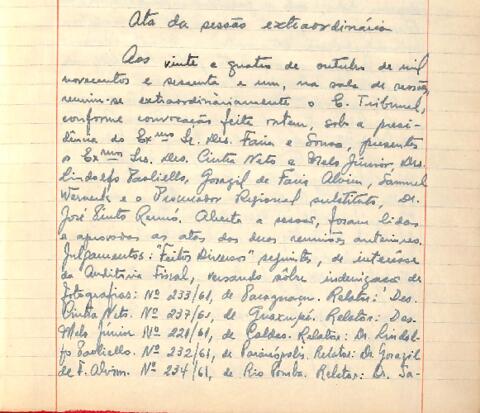 Ata da sessão extraordinária
Aos vinte e quatro de outubro de mil
novecentos e sessenta e um, na sala de sessão,
reuniu-se extraordinàriamente o E. Tribunal,
conforme convocação feita ontem, sob a presi-
dência do Exmo Sr. Des. Faria e Sousa, presentes
o Exmos Srs. Des. Cintra Neto e Melo Júnior, Drs.
Lindolfo Paoliello, Gorazil de Faria Alvim, Samuel
Werneck e o Procurador Regional substituto, Dr.
José Pinto Renó. Aberta a sessão, foram lidas
e aprovadas as atas das duas reuniões anteriores.
Julgamentos: "Feitos Diversos" seguintes, de interêsse
da Auditoria Fiscal, versando sôbre indenização de
fotografias: Nº 233/61, de Paraguaçu. Relator: Des.
Cintra Neto. Nº 237/61, de Guaxupé. Relator: Des.
Melo Júnior Nº 221/61, de Caldas. Relator: Dr. Lindol-
fo Paoliello. Nº 232/61, de Paraisópolis. Relator: Dr. Gorazil
de F. Alvim. Nº 234/61, de Rio Pomba. Relator: Dr. Sa-